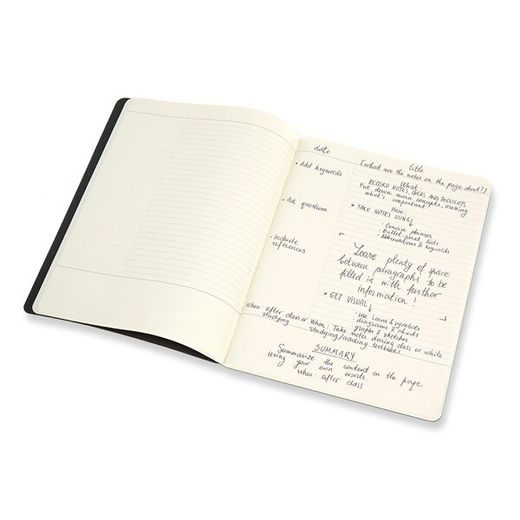 date
title
[what are the notes on the page about?]
• Add keywords
What
RECORD NOTES, IDEAS AND THOUGHTS
Put down main concepts, meaning
what's important
• Ask questions
How
• TAKE NOTES USING
- Concise phrases
- Bullet point lists
- Abbreviations & keywords
• Include
references
Leave plenty of space
between paragraphs to be
filled in with further
information!
• GET VISUAL
- use icons & symbols
diagrams & charts
graphs & sketches
When: after class or
studying
When: Take notes during class or while
studying/reading textbooks
SUMMARY
Summarize the content on the page
using your own words
when: after class